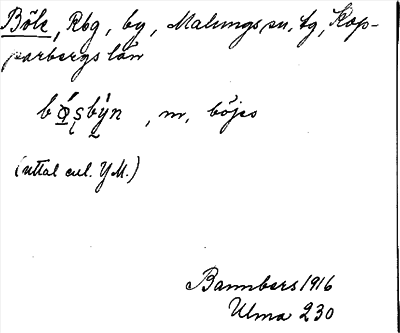 Böle, Rbg, by, Malungs sn, tg, Kop-
parbergs län
bǿ̨ṣbýn , m, böjes
(uttal enl. YM.)
Bannbers 1916
Ulma 230